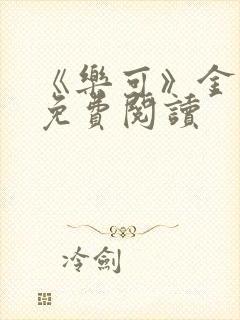 《樂可》金
免費閱讀
冷劍